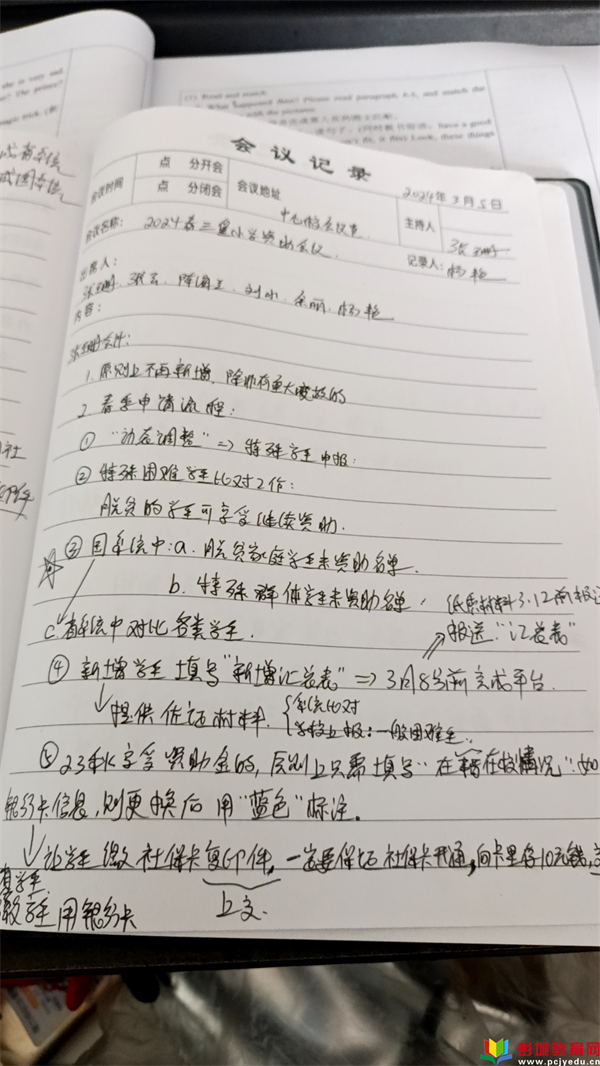 (1) Read and match.
What happened then? Please read paragraph 4-5, and match the
with the pictures.
会议记录
2024年3月5日
会议时间
点 分开会
点 分闭会
会议地址
中心校会议室
主持人
张珊
会议名称:
2024春三里小学资助会议
记录人:
杨艳
出席人:
内容:
1. 原则上不再新增,除非有重大变故的
2. 春季申请流程:
① "动态调整" ⇒ 特殊学生申报:
② 特殊困难学生比对工作:
脱贫的学生可享受继续资助.
③ 国系统中: a. 脱贫家庭学生未资助名单.
b. 特殊群体学生未资助名单,
纸质材料3.12前报
c. 省系统中对比各类学生.
报送"汇总表"
④ 新增学生 填写"新增汇总表" ⇒ 3月8号前完成平台.
提供佐证材料.
系统比对
学校上报: 一般困难生.
⑤ 23秋享受资助金的, 原则上只需填写"在籍在校情况". 如
银行卡信息, 则更换后 用"蓝色"标注.
让学生缴社保卡复印件, 一定要保证社保卡开通, 向卡里存10元钱,
有学生
用银行卡
上交.
彭城教育网
www.pcjyedu.cn